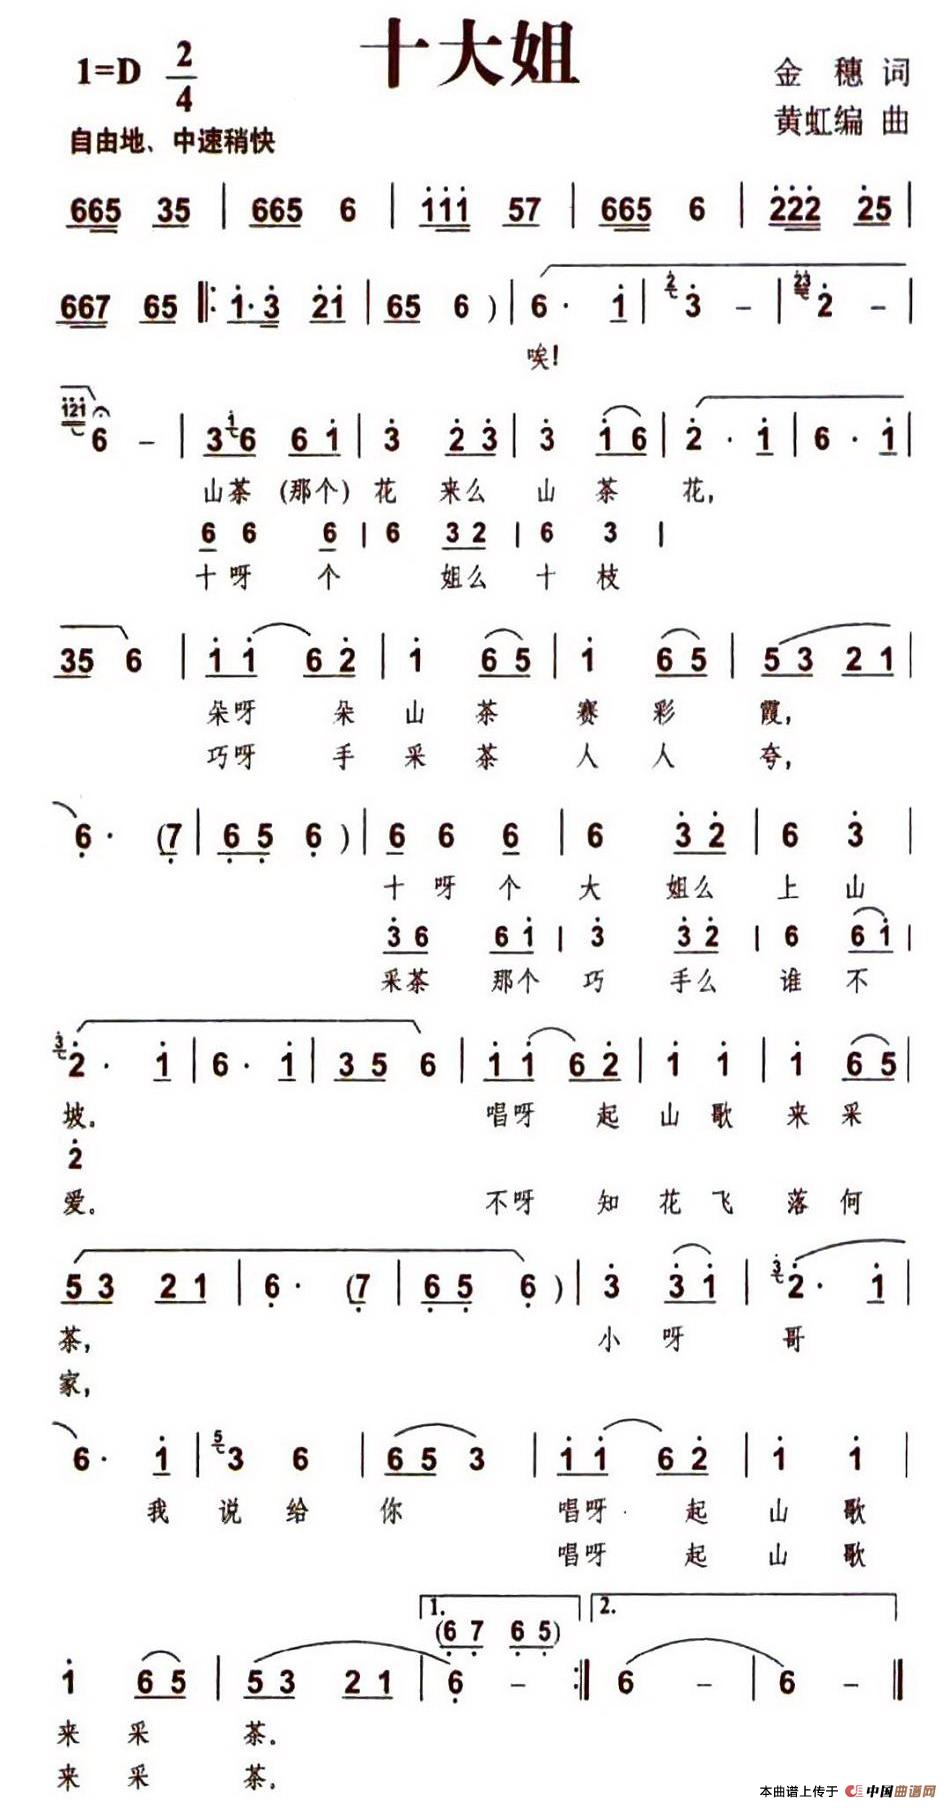 十大姐
1=D 2/4
金 穗 词
黄虹编 曲
自由地、中速稍快
665 35 | 665 6 | 111 57 | 665 6 | 222 25 |
667 65 |: 1·3 21 | 65 6 ) | 6· 1 | 2 3 – | 23 2 – |
唉!
121 6 – | 3 1 6 6 1 | 3 2 3 | 3 1 6 | 2 · 1 | 6 · 1 |
山茶 (那个) 花 来么 山 茶 花,
6 6 6 | 6 3 2 | 6 3 |
十呀 个 姐么 十 枝
35 6 | 1 1 6 2 | 1 6 5 | 1 6 5 | 5 3 2 1 |
朵呀 朵 山 茶 赛 彩 霞,
巧呀 手 采 茶 人 人 夸,
6· (7 | 6 5 6 ) | 6 6 6 | 6 3 2 | 6 3 |
十 呀 个 大 姐么 上 山
3 6 6 1 | 3 3 2 | 6 6 1 |
采茶 那个 巧 手么 谁 不
3 2· 1 | 6· 1 | 3 5 6 | 1 1 6 2 | 1 1 | 1 6 5 |
坡。 唱呀 起 山 歌 来 采
2
爱。 不呀 知 花 飞 落 何
5 3 2 1 | 6· (7 | 6 5 6 ) | 3 3 1 | 3 2· 1 |
茶, 小 呀 哥
家,
6· 1 | 5 3 6 | 6 5 3 | 1 1 6 2 | 1 1 |
我 说 给 你 唱呀 起 山 歌
唱呀 起 山 歌
1. 2.
(6 7 6 5)
1 6 5 | 5 3 2 1 | 6 – :| 6 – | 6 – |
来 采 茶。
来 采 茶。
本曲谱上传于 中国曲谱网